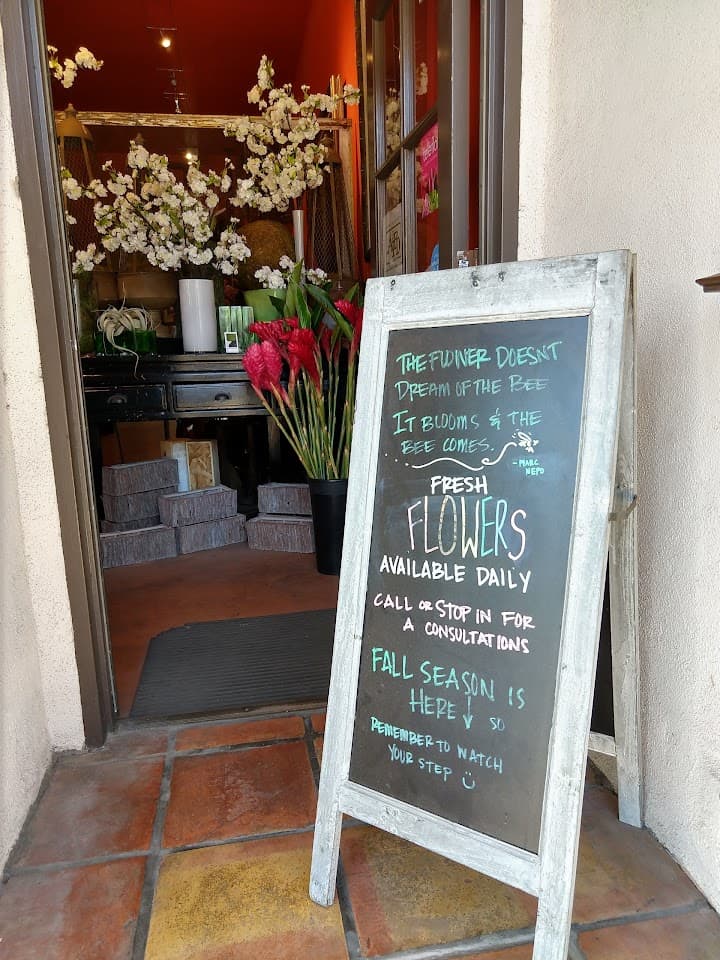 THE FLOWER DOESNT
DREAM OF THE BEE
IT BLOOMS & THE
BEE COMES.
- MARC
NEPO
FRESH
FLOWERS
AVAILABLE DAILY
CALL OR STOP IN FOR
A CONSULTATIONS
FALL SEASON IS
HERE ↓ SO
REMEMBER TO WATCH
YOUR STEP